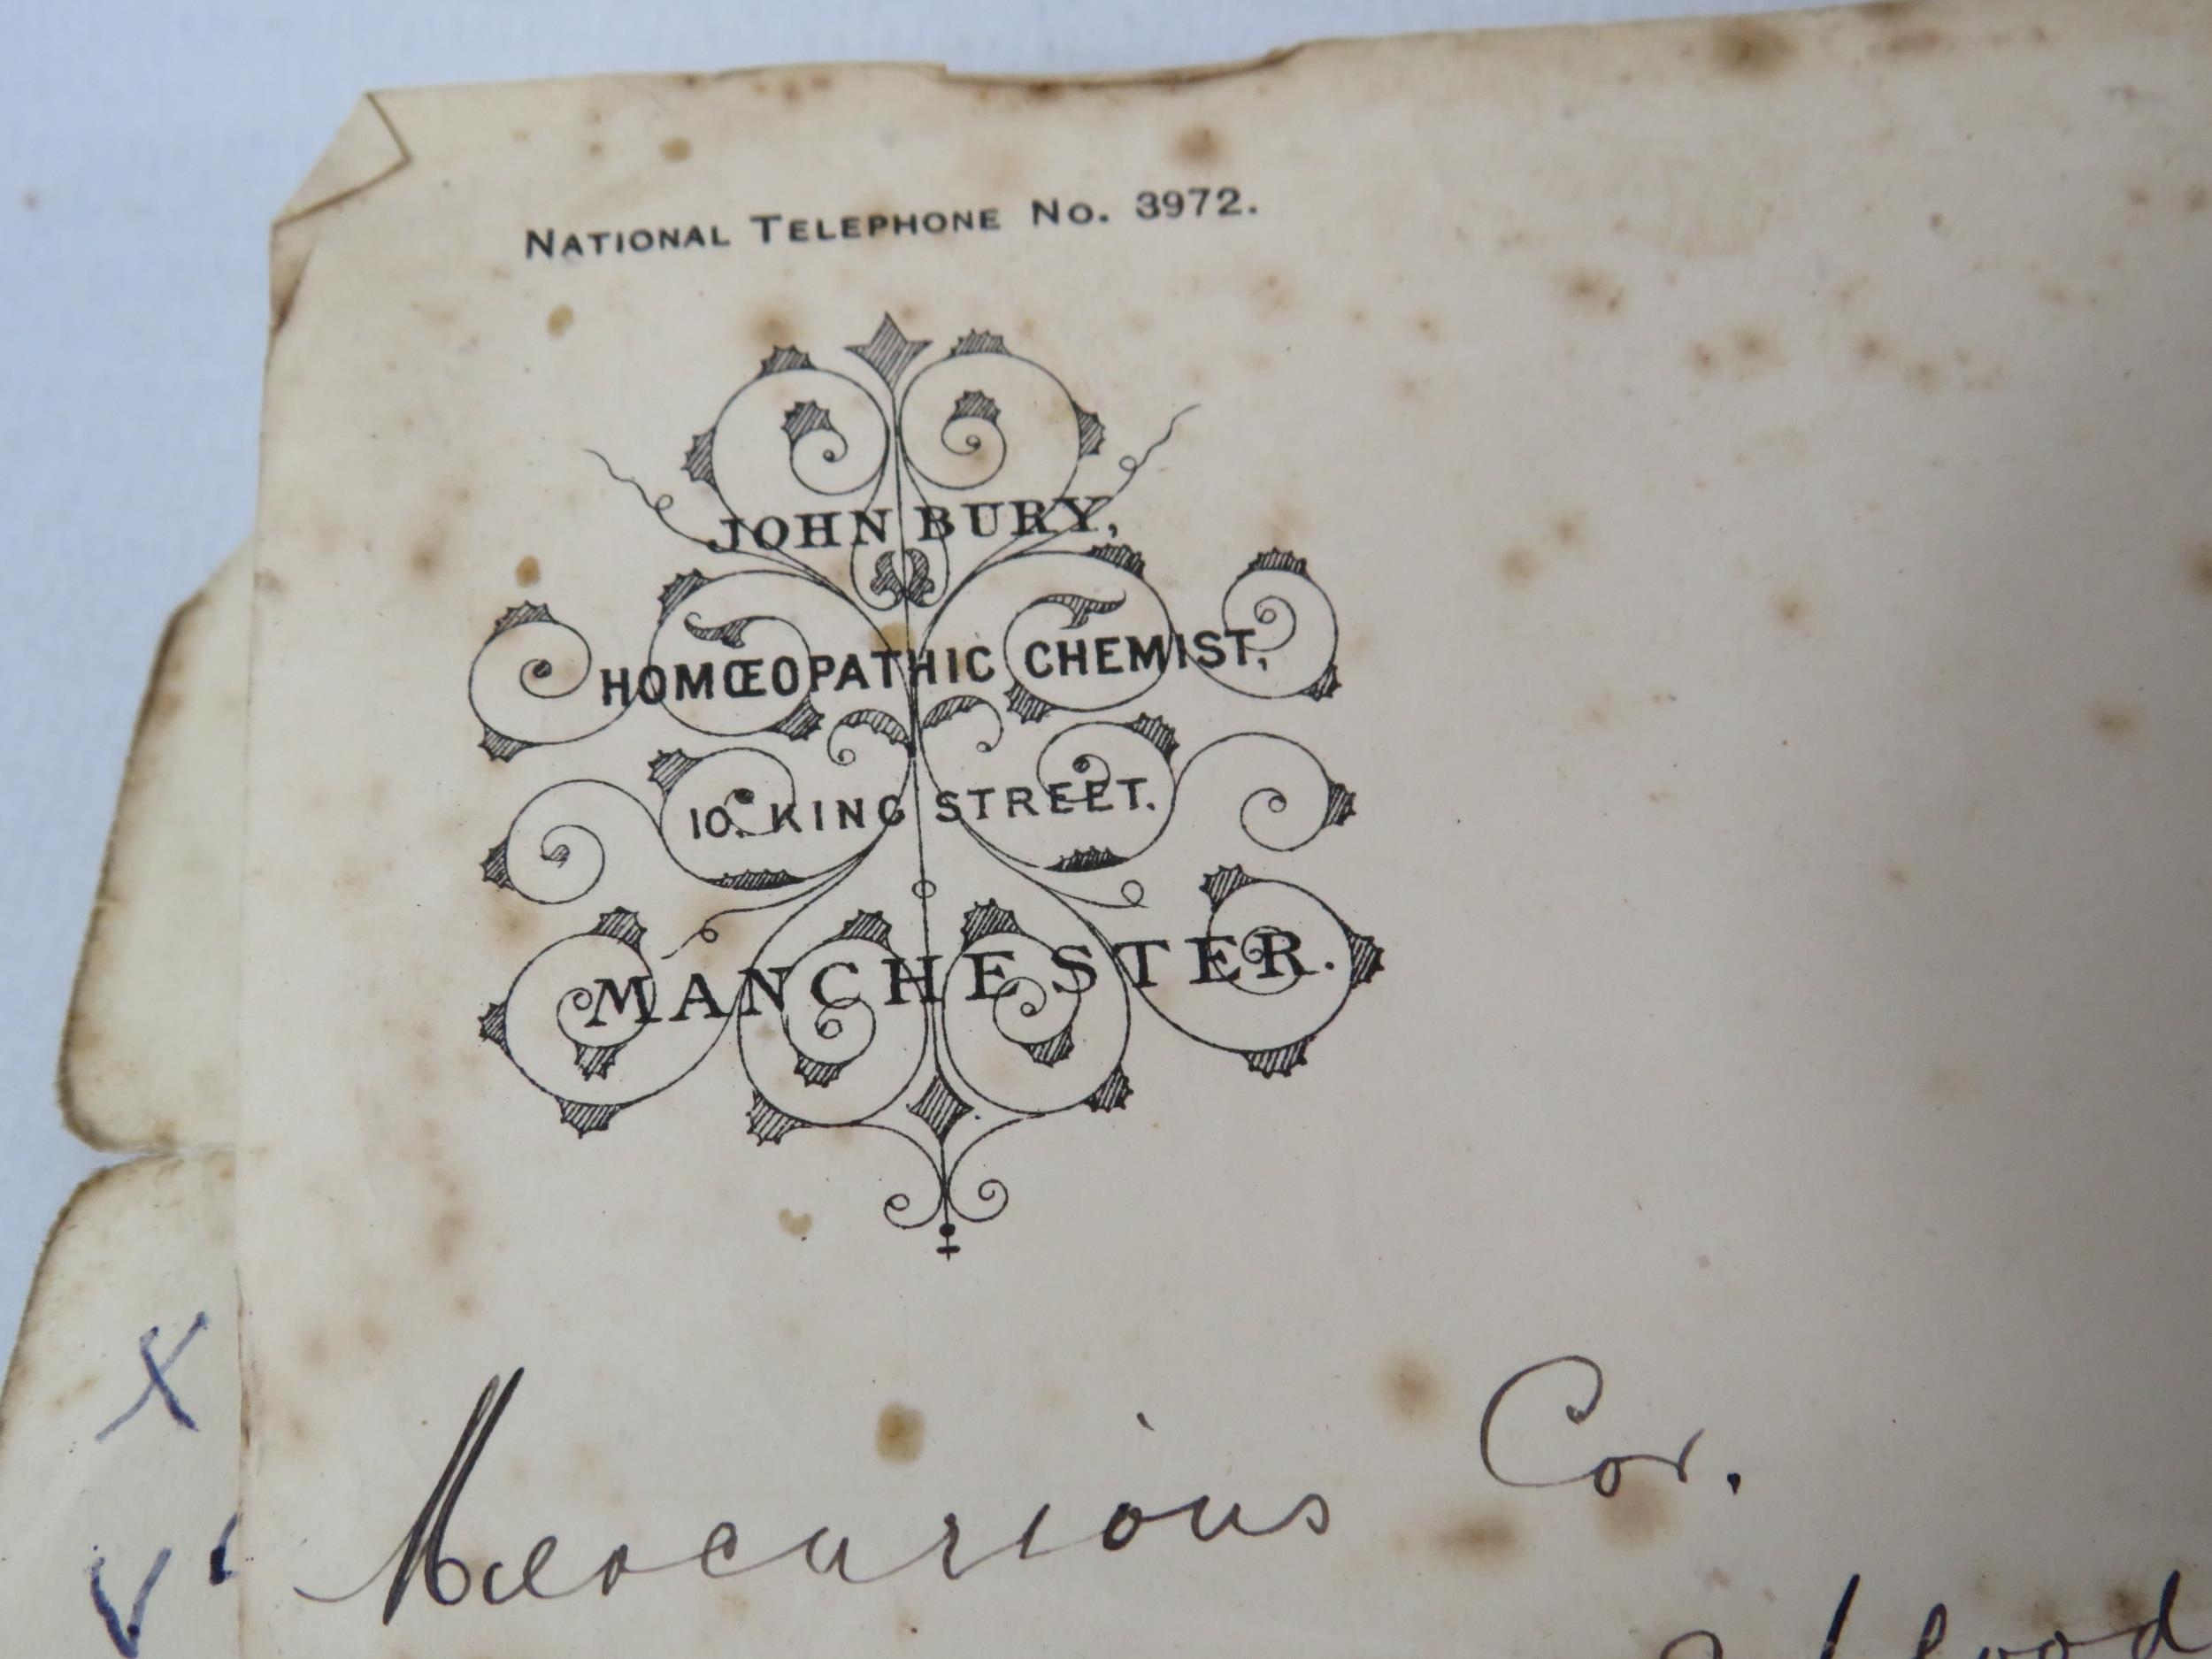 NATIONAL TELEPHONE NO. 3972.
JOHN BURY,
HOMŒOPATHIC CHEMIST,
10. KING STREET.
MANCHESTER.
X
Mercurious Cor.
V
blood